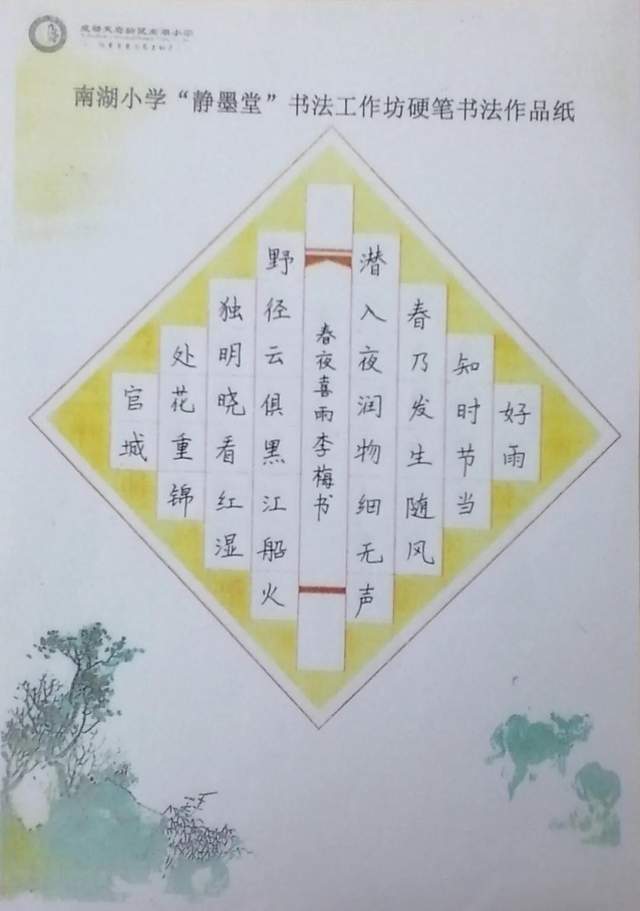 成都天府新区南湖小学
南湖小学“静墨堂”书法工作坊硬笔书法作品纸
好雨
知时节当
春乃发生随风
潜入夜润物细无声
春夜喜雨李梅书
野径云俱黑江船火
独明晓看红湿
处花重锦
官城